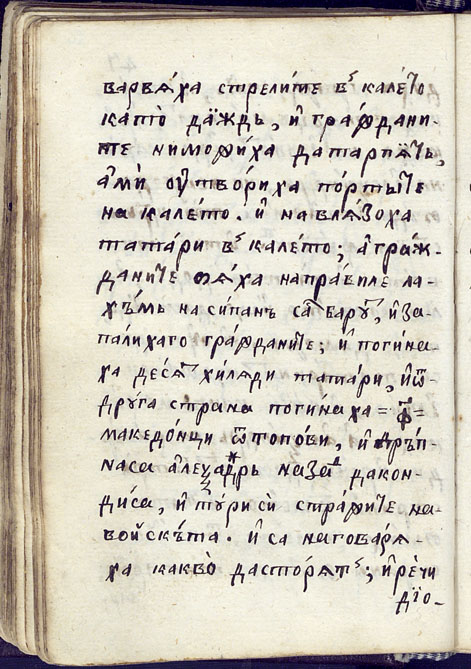 варвѧ́ха стрели́те въ кале́то
като̀ да́ждь, и҆ гра́ждани-
те ниможи́ха датарпѧ́ть,
а҆мѝ ѹ҆твори́ха по́ртыте
на кале́то. и҆ навлѧ́зоха
тата́ри въ кале́то; а҆ гра́ж-
дани́те бѧ́ха напра́виле ла-
хъ́мь наси́панъ са бару́т, и҆ за-
пали́хаго гра́жданите; и҆ поги́на-
ха де́сѧт хи́лѧди тата́ри, и҆ ѿ
дрꙋ́га страна поги́наха =҂ф=
македо́нци ѿ то́пови, и҆ дръ́п-
наса а҆леѯа́ндрь наза́д да кон-
ди́са, и҆ тꙋри сѝ стра́жите на-
во́йскъта. и҆ са наговарѧ́-
ха какво̀ да сто́рѧтъ; и҆ ре́чи
дїо-